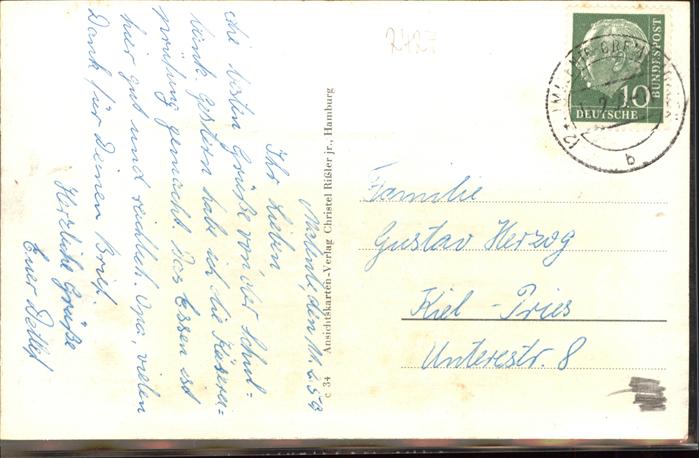 2427
Malente, den 11.2.59
Ihr Lieben
die besten Grüße von der Schul-
bank. Gestern habe ich die Käserei-
prüfung gemacht. Das Essen ist
hier gut und reichlich. Opa, vielen
Dank für Deinen Brief.
Herzliche Grüße
Euer Detlef
c 34 Ansichtskarten-Verlag Christel Rißler jr., Hamburg
DEUTSCHE
BUNDESPOST
10
b
Familie
Gustav Herzog
Kiel-Pries
Unterestr. 8